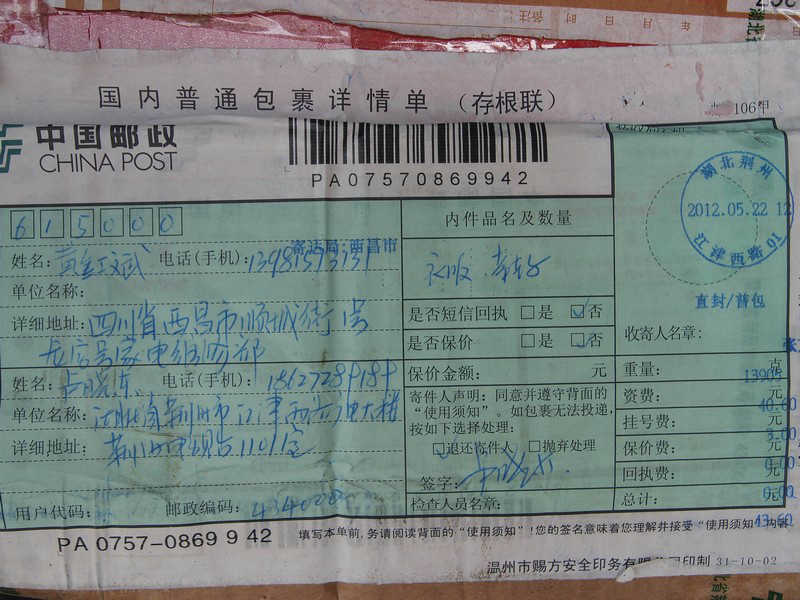 年 月 日 时
备注
国内普通包裹详情单 (存根联)
106甲
中国邮政
CHINA POST
PA07570869942
湖北荆州
2012.05.22 12
江津西路01
直封/普包
615000
寄达局:西昌市
姓名: 电话(手机):
单位名称:
详细地址: 四川省西昌市顺城街 号
家电维修部
姓名: 电话(手机): 18627289189
单位名称: 湖北省荆州市江津西路 电大楼
详细地址: 荆州电视台1101室
用户代码: 邮政编码: 434000
内件品名及数量
衣服
是否短信回执 是 否
是否保价 是 否
保价金额: 元
寄件人声明: 同意并遵守背面的
“使用须知”。如包裹无法投递,
按如下选择处理:
退还寄件人 抛弃处理
签字:
检查人员名章:
收寄人名章:
重量: 克
资费: 元
挂号费: 元
3.00
保价费: 元
0.00
回执费: 元
0.00
总计: 元
43.60
PA 0757-0869 9 42
填写本单前,务请阅读背面的“使用须知”!您的签名意味着您理解并接受“使用须知”内容
温州市赐方安全印务有限公司印制 31-10-02